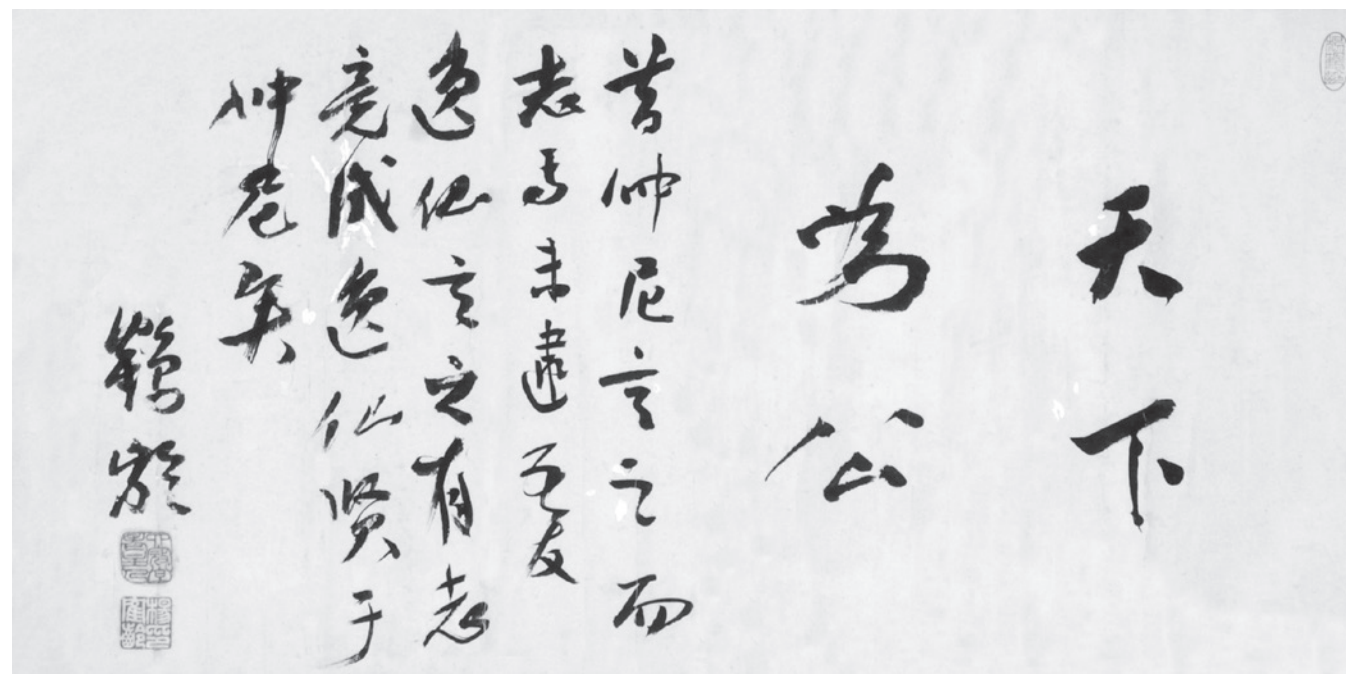 天下
為公
昔仲尼言之而
志焉未逮吾友
逸仙言之有志
竟成逸仙賢于
仲尼矣
鶴齡